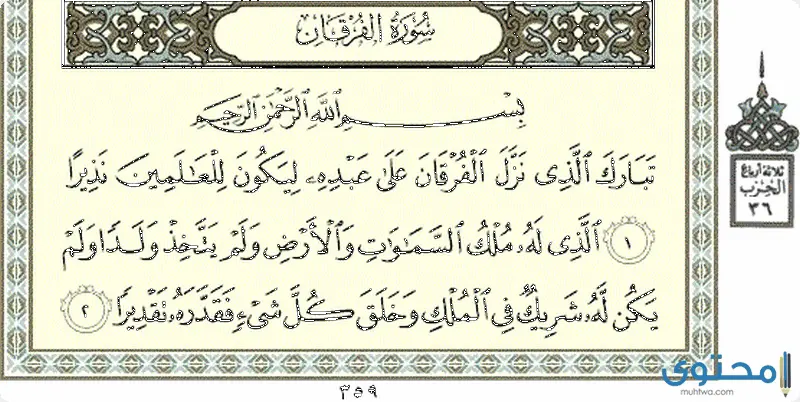 سُورَةُ الفُرْقَان
بِسْمِ ٱللَّهِ ٱلرَّحْمَٰنِ ٱلرَّحِيمِ
تَبَارَكَ ٱلَّذِى نَزَّلَ ٱلْفُرْقَانَ عَلَىٰ عَبْدِهِۦ لِيَكُونَ لِلْعَٰلَمِينَ نَذِيرًا
١ ٱلَّذِى لَهُۥ مُلْكُ ٱلسَّمَٰوَٰتِ وَٱلْأَرْضِ وَلَمْ يَتَّخِذْ وَلَدًا وَلَمْ
يَكُن لَّهُۥ شَرِيكٌ فِى ٱلْمُلْكِ وَخَلَقَ كُلَّ شَىْءٍ فَقَدَّرَهُۥ تَقْدِيرًا ٢
ثلاثة أرباع
الحزب
٣٦
٣٥٩
محتوى
muhtwa.com